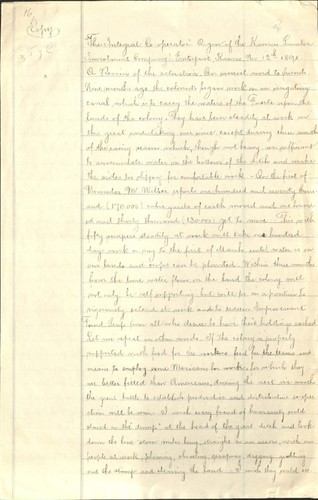 16
Copy
2
The Integral Co-operator. Organ of the Kansas Sinaloa
Investment Company: Enterprise, Kansas, Nov 12th 1891
A Review of the situation. An earnest word to friends
Nine months ago the colonists began work on an irrigating
canal which is to carry the waters of the Fuerte upon the
lands of the colony. They have been steadily at work on
this great undertaking ever since except during three months
of the rainy season which, though not heavy, are sufficient
to accumulate water in the bottom of the ditch and make
the sides too slippery for comfortable work. On the first of
November Mr Wilber reports one hundred and seventy thousand
(170.000) cubic yards of earth moved and one hundred
and thirty thousand (130.000) yet to move. This with
fifty scrapers steadily at work will take one hundred
days work or say to the first of March until water is on
our lands and crops can be planted. Within three months
from the time water flows on the land the colony will
not only be self supporting but will be in a position to
vigorously extend its work and to redeem Improvement
Fund Scrip from all who desire to have their holdings cashed
Let me repeat in other words. If the colony is properly
supported with food for the workers, feed for the teams and
means to employ some Mexicans for work for which they
are better fitted than Americans, during the next six months
the great battle to establish production and distributive co-oper
ation will be won. I wish every friend of humanity could
stand on the "dump" at the head of the great ditch and look
down the line stone under being straight as an arrow, with our
people at work, plowing, shoveling, scraping, digging, grubbing
out the stumps and clearing the land. I wish they could see